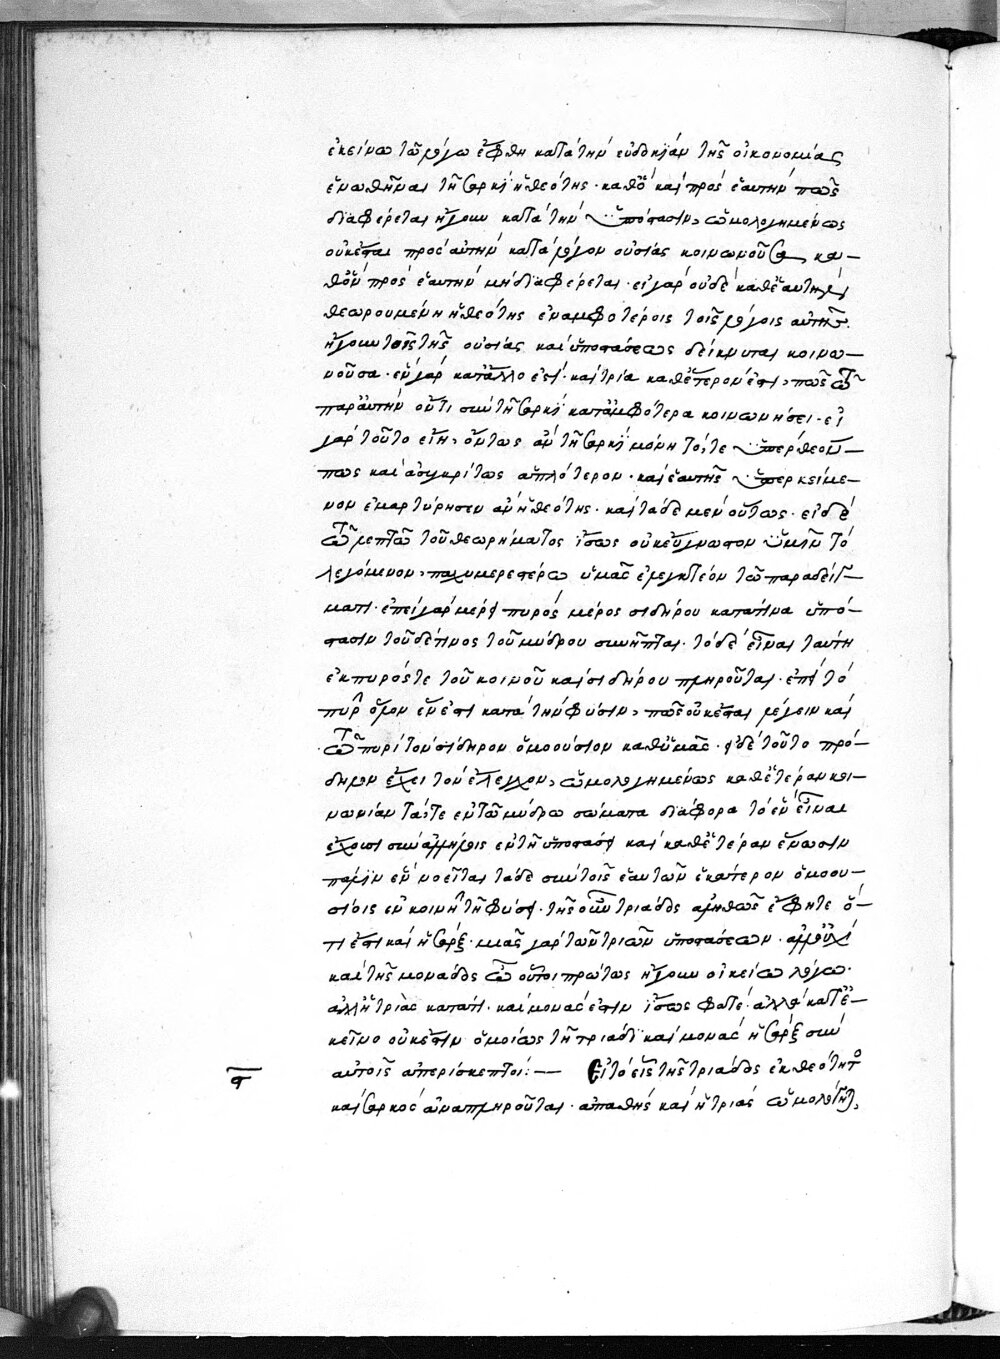 ἐκείνω τῶ λόγω ἔφθη κατὰ τὴν εὐδοκίαν τῆς οἰκονομίας
ἑνωθῆναι τῆ σαρκὶ ἡ θεότης· καθὸ καὶ πρὸς ἑαυτὴν πῶς
διαφέρεται ἤγουν κατὰ τὴν ὑπόστασιν, ὡμολογημένως
οὐκέται πρὸς αὐτὴν κατὰ λόγον οὐσίας κοινωνοῦσα κα-
θ' ὃν πρὸς ἑαυτὴν μὴ διαφέρεται· εἰ γὰρ οὐδὲ καθ' ἑαυτὴν
θεωρουμένη ἡ θεότης ἐν ἀμφοτέροις τοῖς λόγοις αὐτῆς
ἤγουν τοῖς τῆς οὐσίας καὶ ὑποστάσεως δείκνυται κοινω-
νοῦσα· ἓν γὰρ κατ' ἄλλο ἐστὶ· καὶ τρία καθ' ἕτερον ἐστι, πῶς
παρ' αὐτὴν οὔτι σὺν τῆ σαρκὶ κατ' ἀμφότερα κοινωνήσει· εἰ
γὰρ τοῦτο εἴη, ὄντως ἂν τῆ σαρκὶ μόνη τό,τε ὑπέρθεον
πως καὶ ἀσυγκρίτως ἁπλότερον· καὶ ἑαυτῆς ὑπερκείμε-
νον ἐμαρτύρησεν ἂν ἡ θεότης· καὶ ταδὲ μὲν οὕτως· εἰ δὲ
τῶ λεπτῶ τοῦ θεωρήματος ἴσως οὐκ εὔγνωστον ὑμῖν τὸ
λεγόμενον, παχυμερεστέρω ὑμᾶς ἐλεγκτέον τῶ παραδείγ-
ματι· ἐπεὶ γὰρ μέρει πυρὸς μέρος σιδήρου κατὰ τινα ὑπό-
στασιν τοῦδε τινος τοῦ μύδρου συνῆπται· τὸ δὲ εἶναι ταύτη
ἐκ πυρός τε τοῦ κοινοῦ καὶ σιδήρου πληροῦται· ἐπεὶ τὸ
πῦρ ὅλον ἕν ἐστι κατὰ τὴν φύσιν, πῶς οὐκέται λέγειν καὶ
τῶ πυρὶ τὸν σίδηρον ὁμοούσιον καθ' ὑμᾶς· εἰ δὲ τοῦτο πρό-
δηλον ἔχει τὸν ἔλεγχον, ὡμολογημένως καθ' ἑτέραν κοι-
νωνίαν τά,τε ἐν τῶ μύδρω σώματα διάφορα τὸ ἓν εἶναι
ἔχουσι συναλλήλοις ἐν τῆ ὑποστάσει καὶ καθ' ἑτέραν ἕνωσιν
πάλιν ἓν νοεῖται τάδε σὺν τοῖς ἑαυτῶν ἑκάτερον ὁμοου-
σίοις ἐν κοινῆ τῆ φύσει· τῆς οὖν τριάδος ἀληθῶς ἔφητε ὅ-
τι ἐστι καὶ ἡ σάρξ· μιᾶς γὰρ τῶν τριῶν ὑποστάσεων· ἀλλ' οὐχὶ
καὶ τῆς μονάδος ὦ οὗτοι πρώτως ἤγουν οἰκείω λόγω·
ἀλλ' ἡ τριὰς κατὰ τί· καὶ μονάς ἐστιν ἴσως φατέ· ἀλλὰ κατ' ἐ-
κεῖνο οὐκέστιν ὁμοίως τῆ τριάδι καὶ μονὰς ἡ σὰρξ σὺν
αὐτοῖς ἀπερίσκεπτοι:— Εἰ τὸ εἷς τῆς τριάδος ἐκ θεότητο
ϛ
καὶ σαρκὸς ἀναπληροῦται· ἀπαθὴς καὶ ἡ τριὰς ὡμολόγηται,